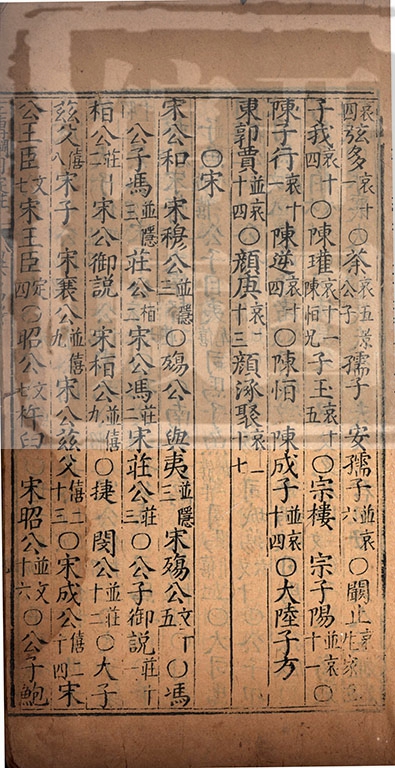 哀四弦多哀十一〇荼哀五景公子 孺子 安孺子並哀六〇闞止
子我哀十四〇陳瓘哀十一陳恒兄子玉哀十五〇宗樓 宗子陽並哀十一〇
陳子行哀十一陳逆哀十四〇陳恒 陳成子並哀十四〇大陸子方
東郭賈並哀十四〇顔庚哀二十三顔涿聚哀二十七
〇宋
宋公和 宋穆公並隱三〇殤公 與夷並隱三宋殤公〇馮
公子馮並隱三莊公桓二宋公馮 宋莊公莊三〇公子御説莊十一
桓公莊十二宋公御説 宋桓公並僖九〇捷 閔公並莊十二〇大子
兹父僖八宋子 宋襄公並僖九宋公兹父僖二十三〇宋成公僖二十四宋
公王臣文七宋王臣定四〇昭公文七杵臼 宋昭公並文十六〇公子鮑